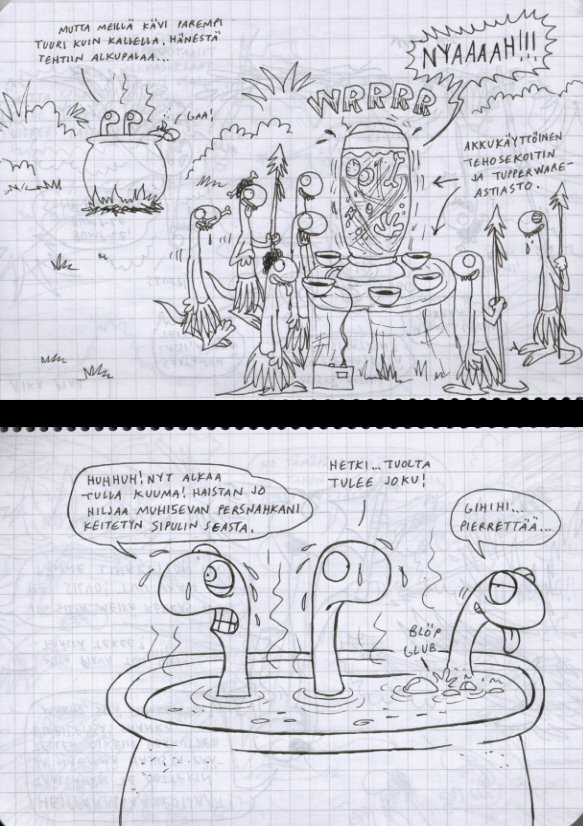 MUTTA MEILLÄ KÄVI PAREMPI
TUURI KUIN KALLELLA. HÄNESTÄ
TEHTIIN ALKUPALAA...
GAA!
NYAAAAH!!!
WRRRR
AKKUKÄYTTÖINEN
TEHOSEKOITIN
JA TUPPERWARE-
ASTIASTO.
HUHHUH! NYT ALKAA
TULLA KUUMA! HAISTAN JO
HILJAA MUHISEVAN PERSNAHKANI
KEITETYN SIPULIN SEASTA.
HETKI... TUOLTA
TULEE JOKU!
GIHIHI...
PIERRETTÄÄ...
BLÖP
GLUB